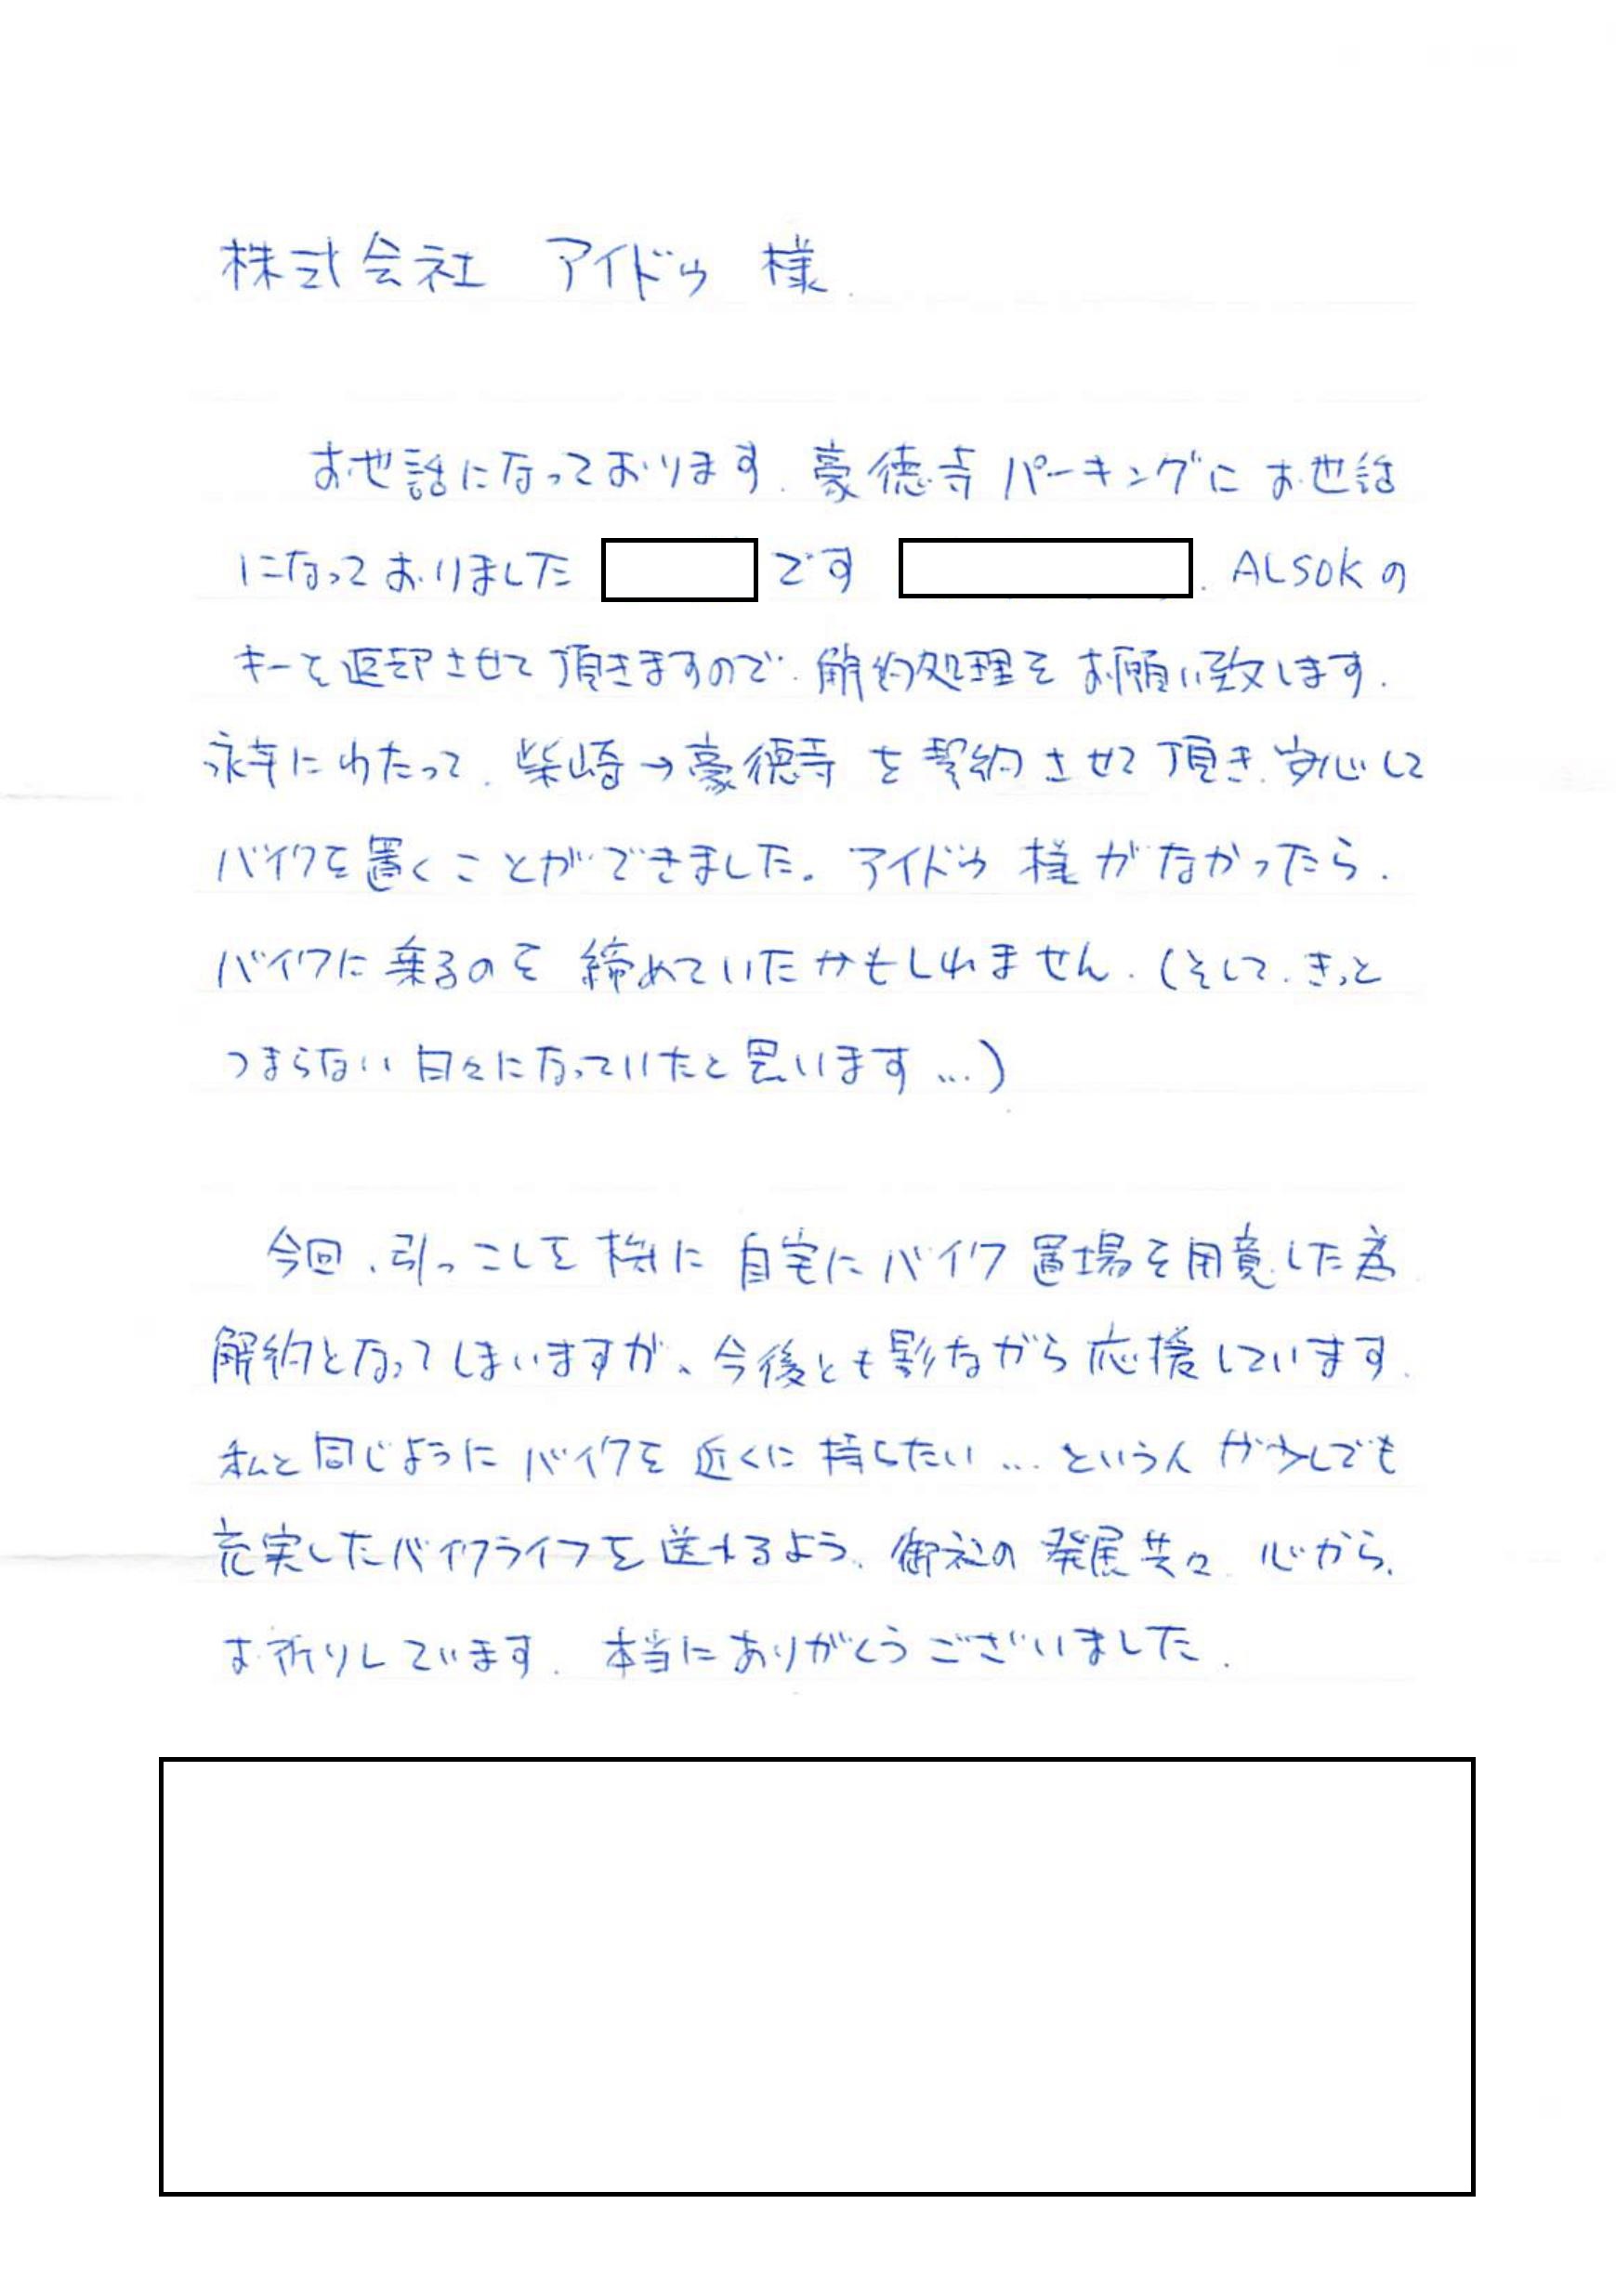 株式会社 アイドゥ 様
お世話になっております. 豪徳寺パーキングにお世話
になっておりました です . ALSOKの
キーを返却させて頂きますので. 解約処理をお願い致します.
永年にわたって. 柴崎→豪徳寺を契約させて頂き. 安心して
バイクを置くことができました。アイドゥ様がなかったら.
バイクに乗るのを締めていたかもしれません. (そして. きっと
つまらない日々になっていたと思います...)
今回、引っこしを機に自宅にバイク置場を用意した為
解約となってしまいますが、今後とも影ながら応援しています.
私と同じようにバイクを近くに持ちたい...という人が少しでも
充実したバイクライフを送れるよう、御社の発展共々 心から、
お祈りしています. 本当にありがとうございました.